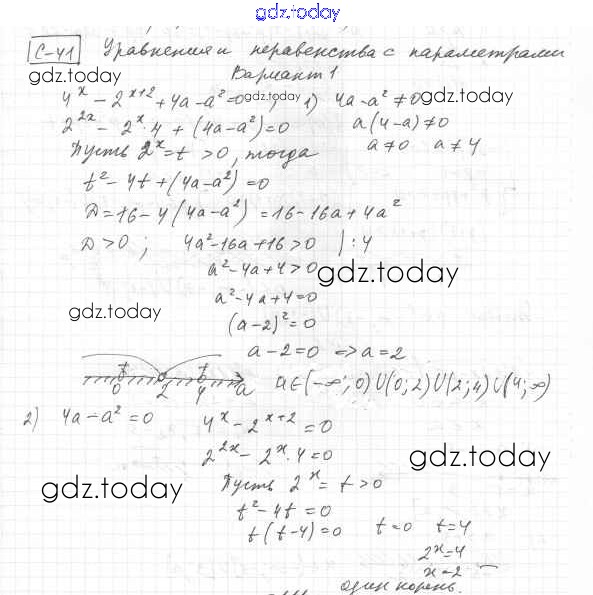 gdz.today
С-41 Уравнения и неравенства с параметрами
gdz.today Вариант 1
4^x − 2^{x+2} + 4a − a² = 0 gdz.today ; 1) 4a − a² ≠ 0 gdz.today
2^{2x} − 2^x · 4 + (4a − a²) = 0 a(4 − a) ≠ 0
Пусть 2^x = t > 0, тогда a ≠ 0 a ≠ 4
t² − 4t + (4a − a²) = 0
Д = 16 − 4(4a − a²) = 16 − 16a + 4a²
Д > 0 ; 4a² − 16a + 16 > 0 | : 4
a² − 4a + 4 > 0 gdz.today
gdz.today a² − 4a + 4 = 0
(a − 2)² = 0
a − 2 = 0 => a = 2
+ +
0 2 4 a a ∈ (−∞; 0) U (0; 2) U (2; 4) U (4; ∞)
2) 4a − a² = 0 4^x − 2^{x+2} = 0
2^{2x} − 2^x · 4 = 0 gdz.today
gdz.today Пусть 2^x = t > 0
t² − 4t = 0
t(t − 4) = 0 t = 0 t = 4
2^x = 4
x = 2 –
один корень.